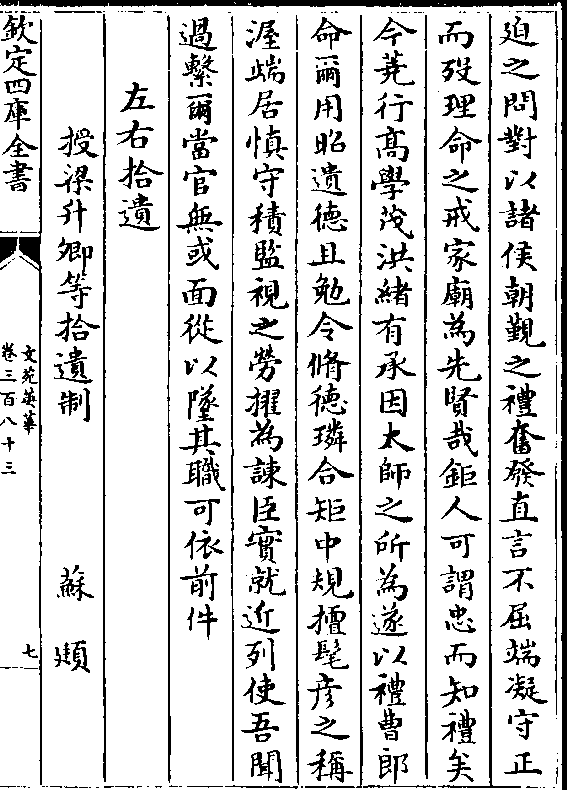 迫之問對以諸侯朝覲之禮奮發直言不屈端凝守正
而殁理命之戒家廟為先賢哉鉅人可謂忠而知禮矣
今蕘行髙學茂洪緒有承因太師之所為遂以禮曹郎
命爾用昭遺德且勉令脩德璘合矩中規擅髦彦之稱
渥端居慎守積監視之勞擢為諫臣實就近列使吾聞
過繫爾當官無或面從以墜其職可依前件
左右拾遺
授梁升卿等拾遺制 蘇頲
欽定四庫全書
文苑英華
卷三百八十三
七